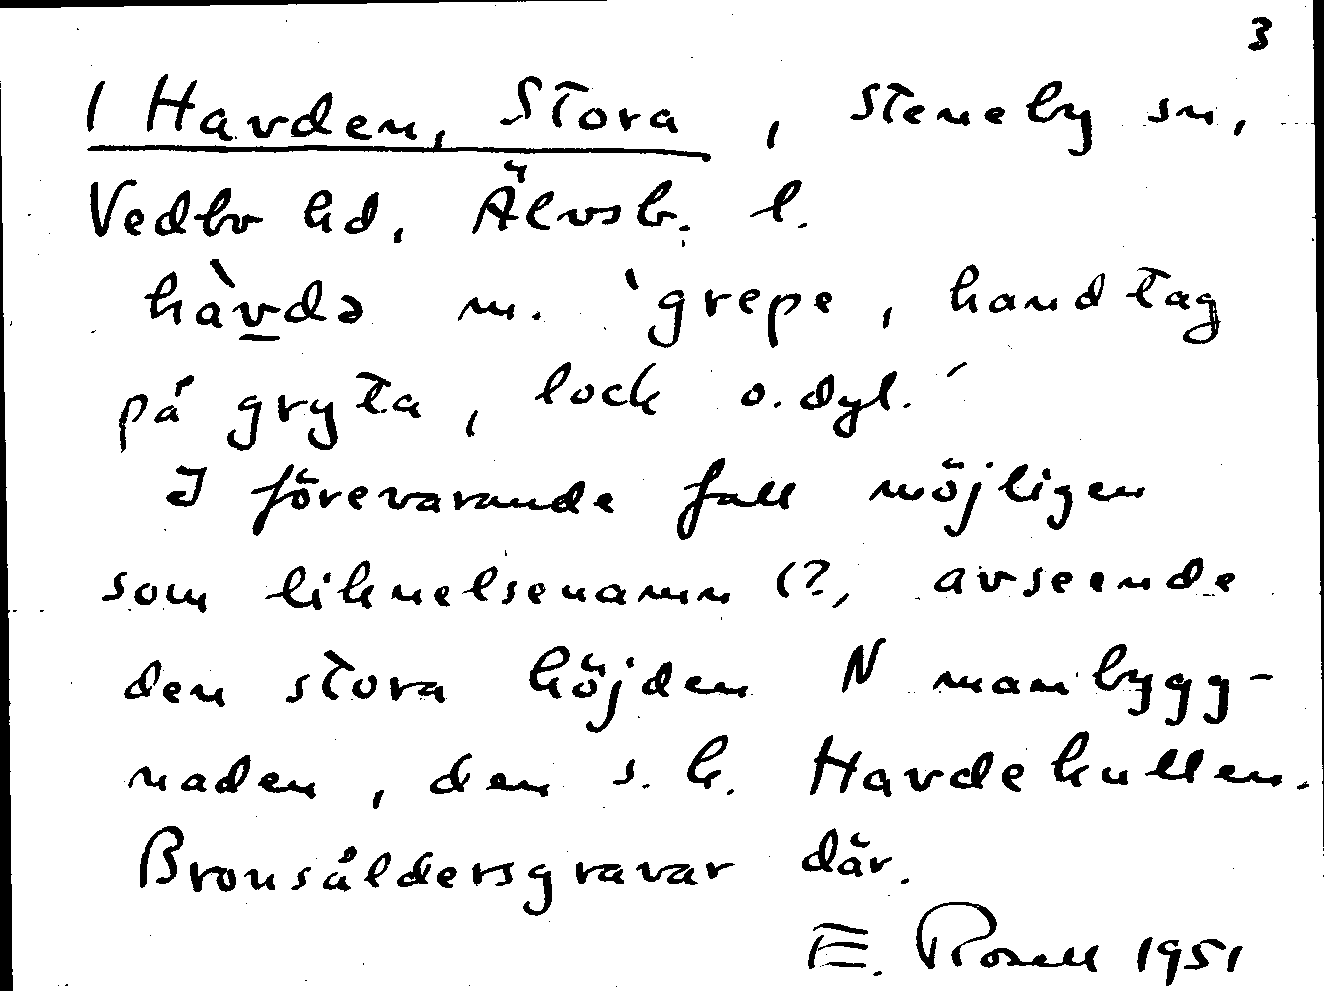 3
1 Havden, Stora, Steneby sn,
Vedbo hd, Älvsb. l.
hàvdə m. 'grepe, handtag
på gryta, lock o.dyl.'
I förevarande fall möjligen
som liknelsenamn (?, avseende
den stora höjden N manbygg-
naden, den s.k. Havdekullen.
Bronsåldersgravar där.
E. Rosell 1951